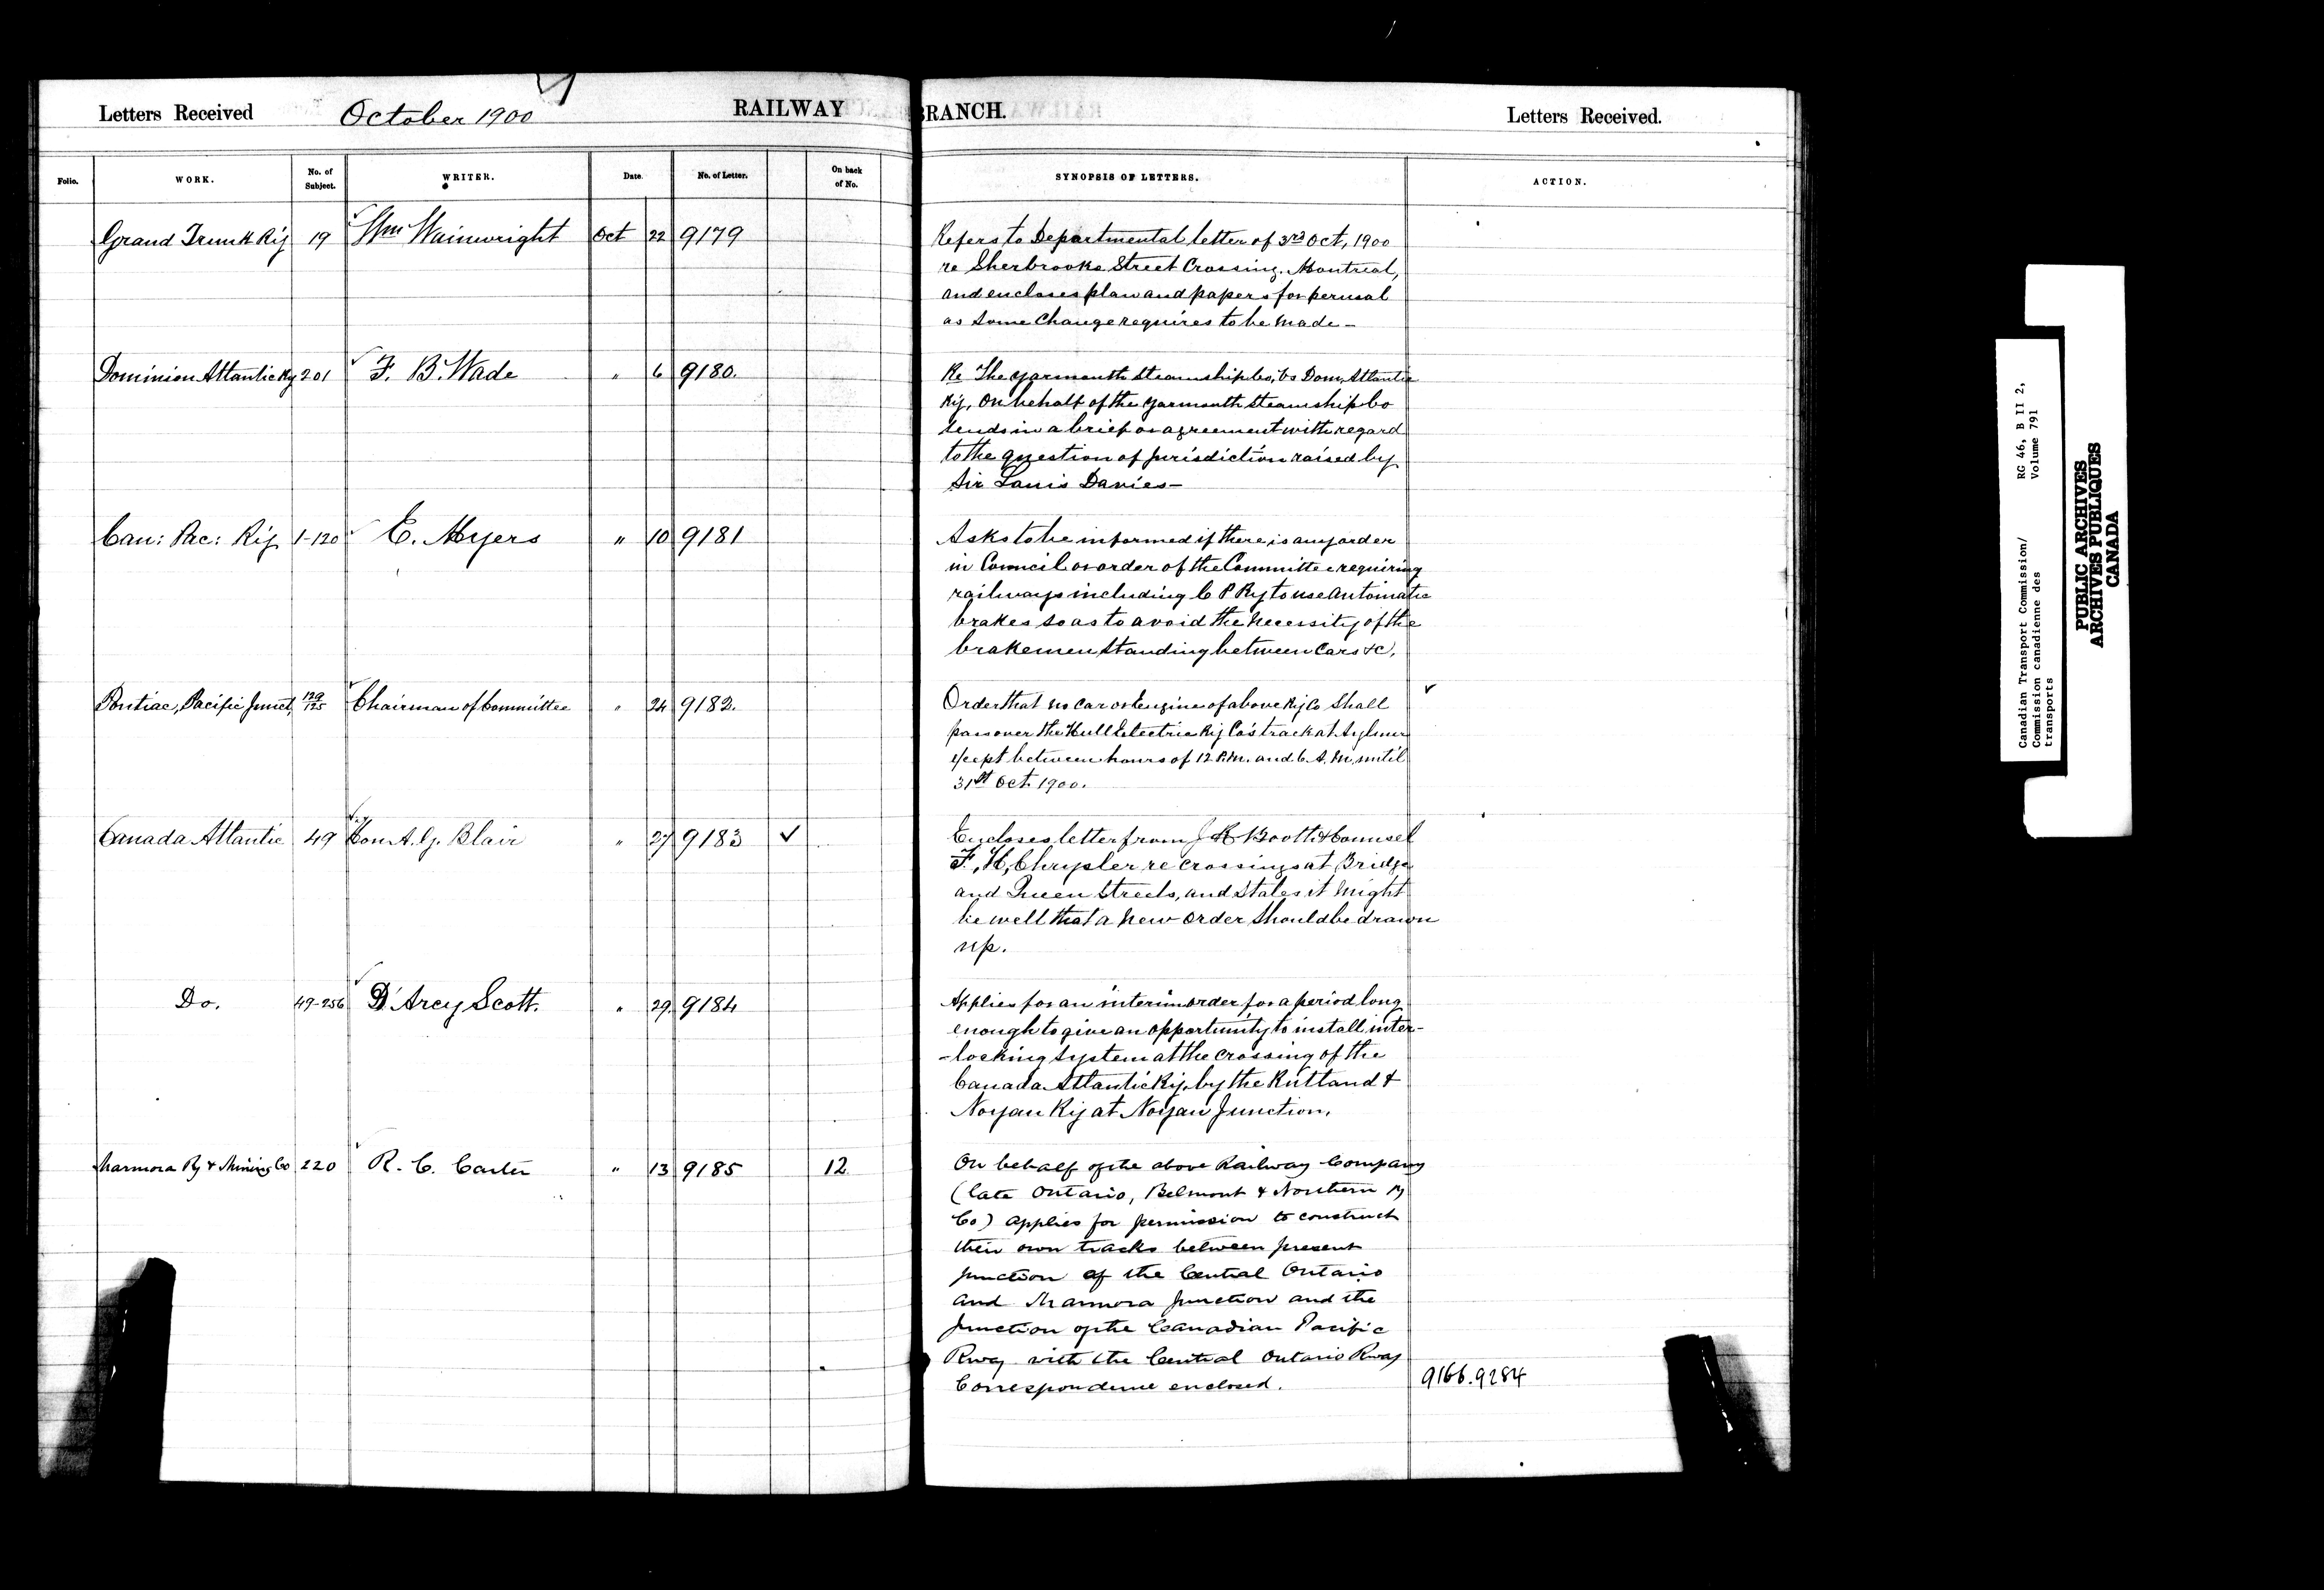 Letters Received October 1900 RAILWAY BRANCH. Letters Received.
Folio. WORK. No. of Subject. WRITER. Date. No. of Letter. On back of No. SYNOPSIS OF LETTERS. ACTION.
Grand Trunk Ry 19 Wm Wainwright Oct 22 9179
Refers to Departmental letter of 3rd Oct, 1900
re Sherbrooke Street Crossing. Montreal,
and encloses plan and papers for perusal
as some change requires to be made -
Dominion Atlantic Ry 201 F. B. Wade " 6 9180.
Re The Yarmouth Steamship Co; vs Dom, Atlantic
Ry, On behalf of the Yarmouth Steamship Co
sends in a brief or agreement with regard
to the question of jurisdiction raised by
Sir Louis Davies -
Can: Pac: Ry 1-120 E. Myers " 10 9181
Asks to be informed if there is any order
in Council or order of the Committee requiring
railways including C P Ry to use Automatic
brakes so as to avoid the necessity of the
brakemen standing between cars &c,
Pontiac, Pacific Junct, 129/125 Chairman of Committee " 24 9182.
Order that no car or Engine of above Ry Co shall
pass over the Hull Electric Ry Co's track at Aylmer
except between hours of 12 P.M. and 6 A.M. until
31st Oct. 1900.
Canada Atlantic 49 Hon A. G. Blair " 27 9183 ✓
Encloses letter from J R Booth & Counsel
F, H, Chrysler re crossings at Bridge
and Queen Streets, and states it might
be well that a new order should be drawn
up.
Do. 49-256 D'Arcy Scott. " 29. 9184
Applies for an interim order for a period long
enough to give an opportunity to install inter-
-locking system at the crossing of the
Canada Atlantic Ry, by the Rutland &
Noyan Ry at Noyan Junction,
Marmora Ry & Mining Co 220 R. C. Carter " 13 9185 12
On behalf of the above Railway Company
(late Ontario, Belmont & Northern Ry
Co) applies for permission to construct
their own tracks between present
junction of the Central Ontario
and Marmora Junction and the
junction of the Canadian Pacific
Rwy with the Central Ontario Rway
Correspondence enclosed. 9166.9284
Canadian Transport Commission/ RG 46, B II 2,
Commission canadienne des Volume 791
transports
PUBLIC ARCHIVES
ARCHIVES PUBLIQUES
CANADA